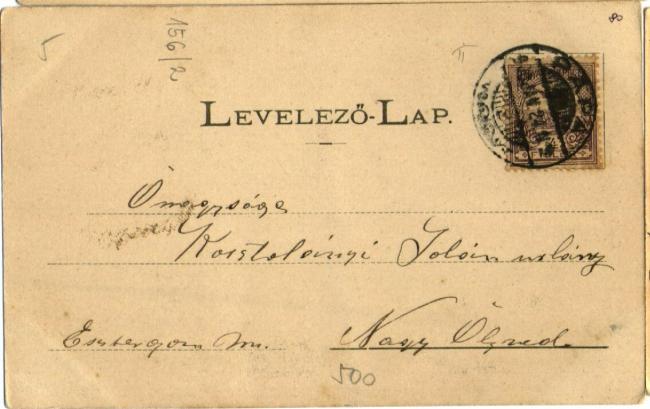 5
156/2
II
LEVELEZŐ-LAP.
Őnagysága
Kosztolányi Jolán urlány
Esztergom m.
Nagy Ölyved
500